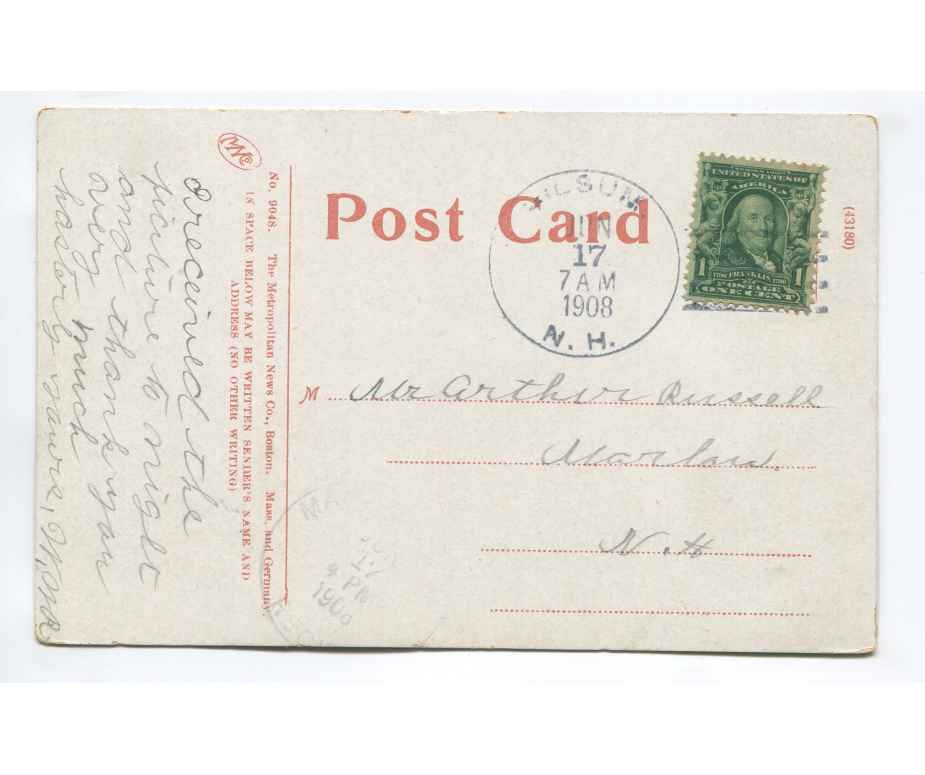 Post Card
GILSUM
JUN
17
7 AM
1908
N. H.
UNITED STATES OF
AMERICA
1 FRANKLIN 1
POSTAGE
ONE CENT
(43180)
M Mr Arthur Russell
Marlow.
N. H
No. 9048. The Metropolitan News Co., Boston. Mass. and Germany.
IN SPACE BELOW MAY BE WRITTEN SENDER'S NAME AND
ADDRESS (NO OTHER WRITING)
I received the
picture to night
and thank you
very much
hastily yours,
MA
17
PM
REC